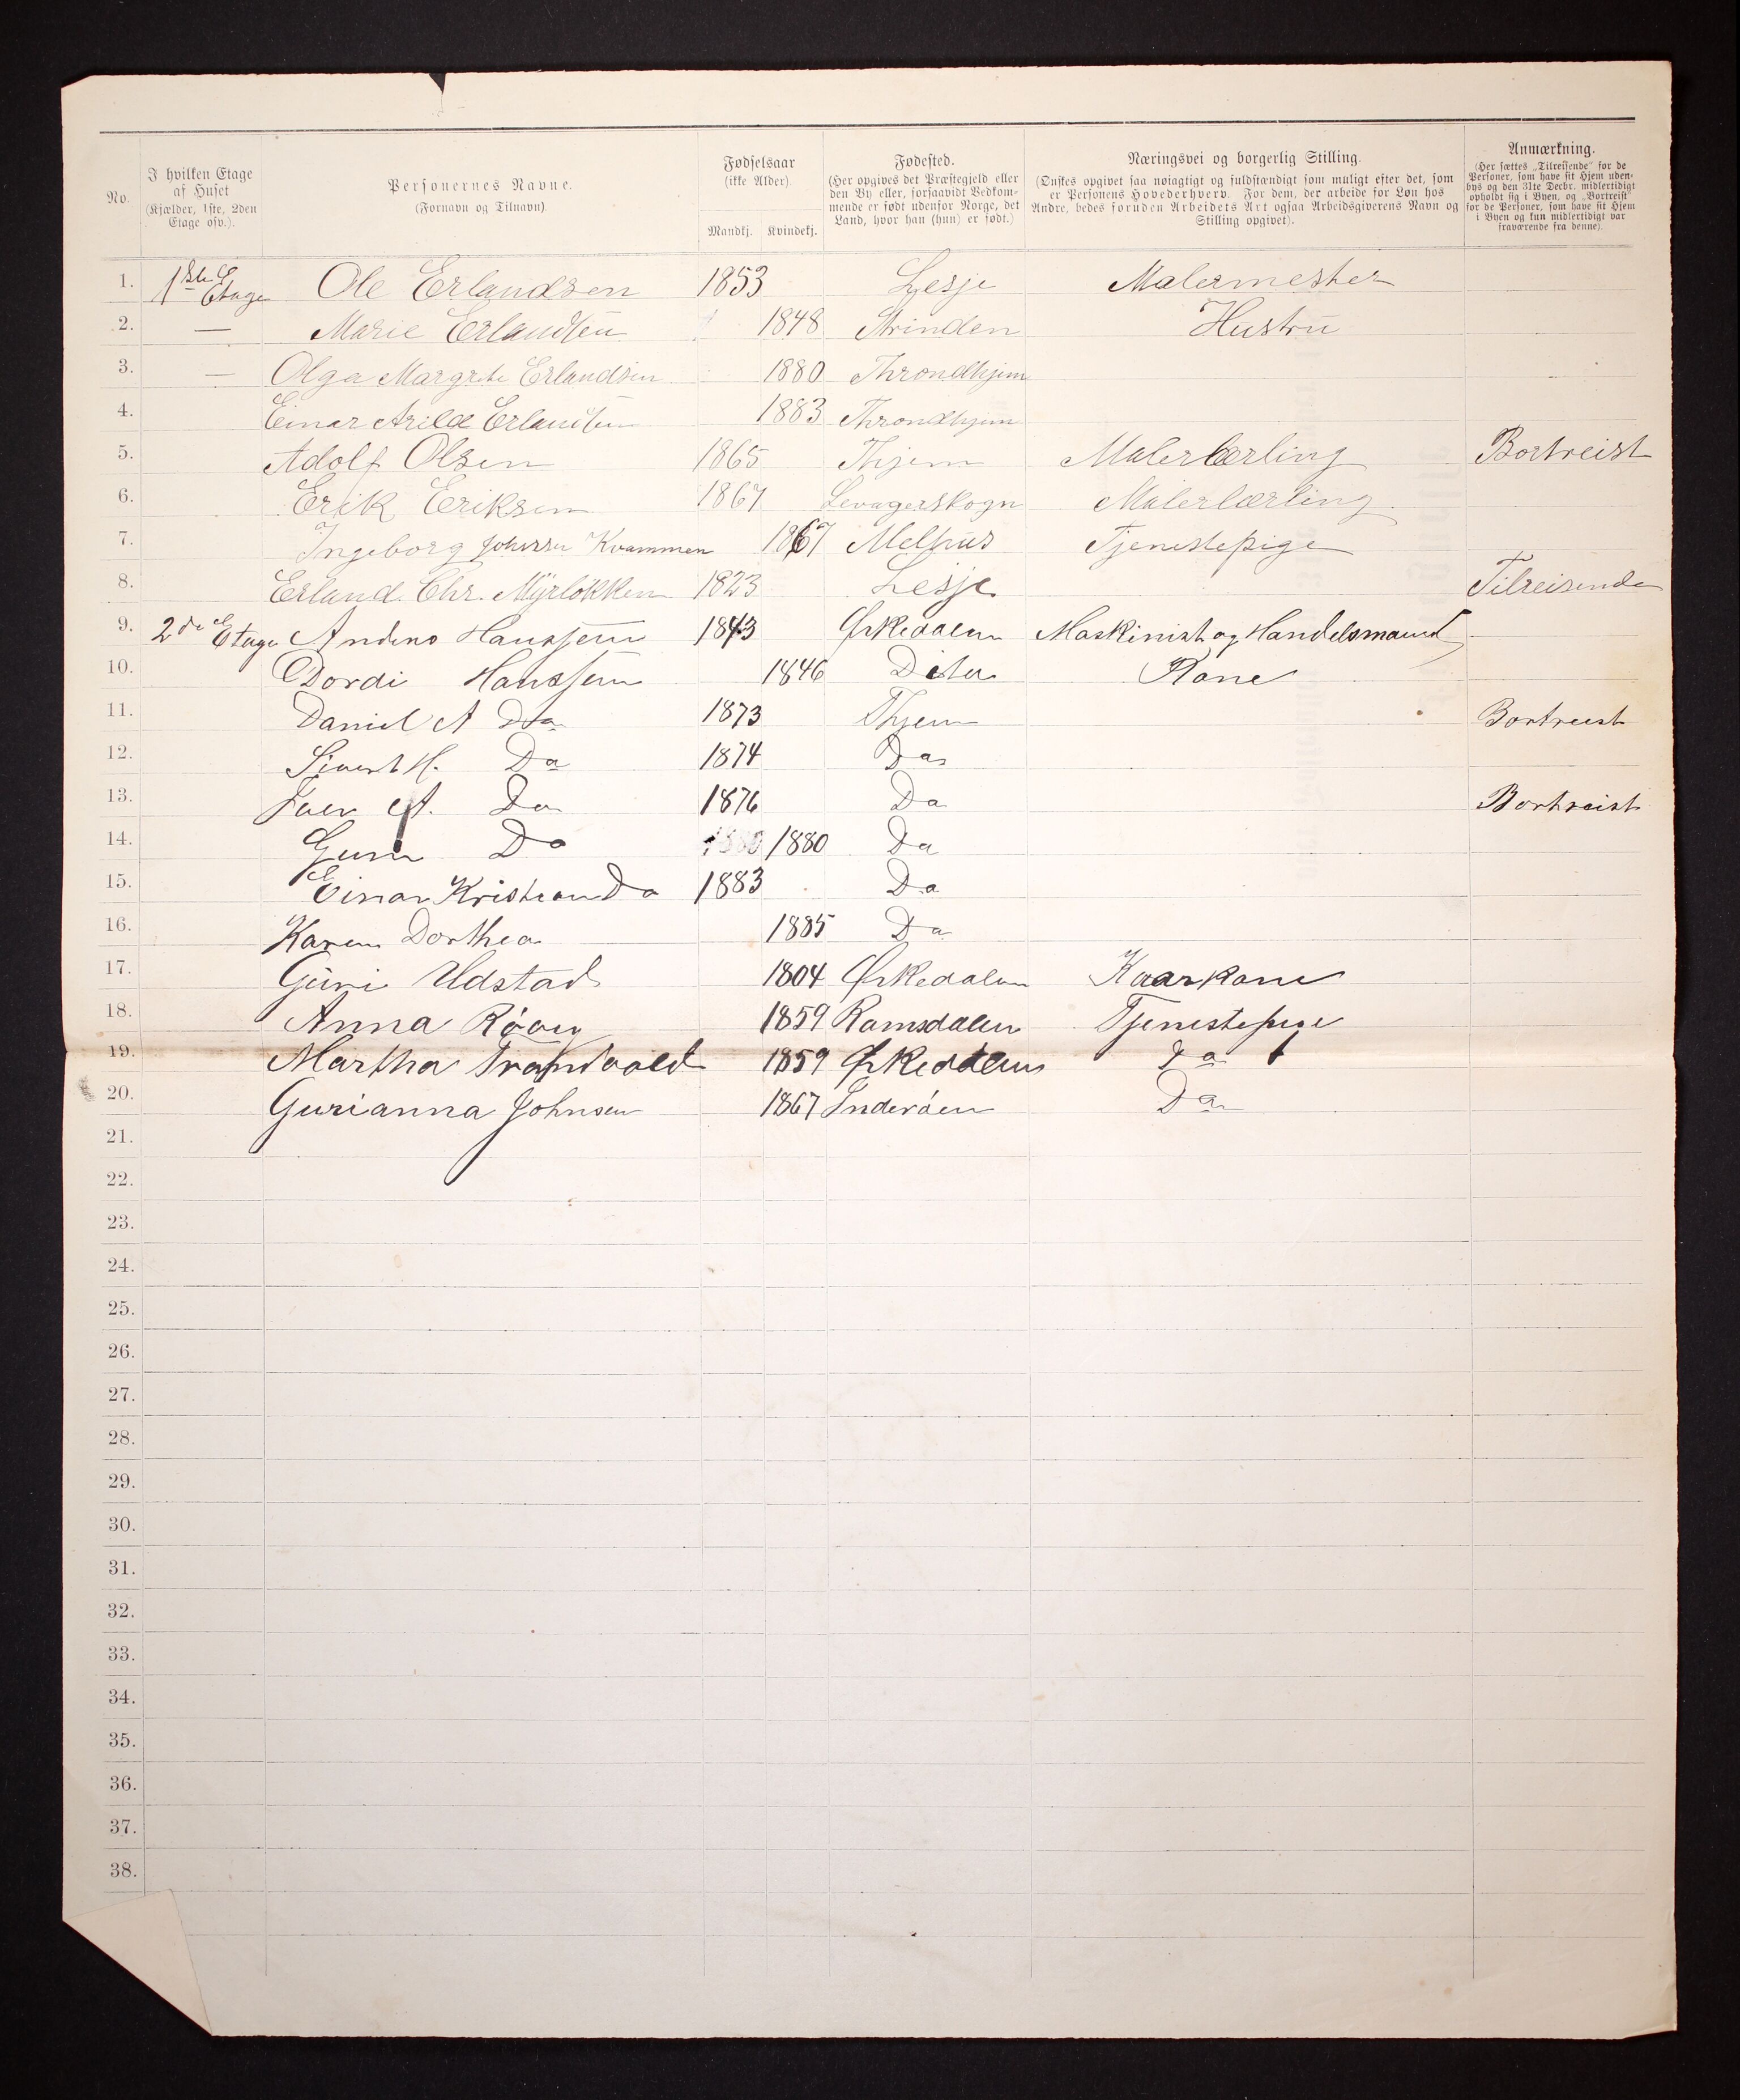 No.
I hvilken Etage
af Huset
(Kjælder, 1ste, 2den
Etage osv.).
Personernes Navne.
(Fornavn og Tilnavn)
Fødselsaar
(ikke Alder).
Mandkj. Kvindekj.
Fødested.
(Her opgives det Præstegjeld eller
den By eller, forsaavidt Vedkom-
mende er født udenfor Norge, det
Land, hvor han (hun) er født.)
Næringsvei og borgerlig Stilling.
(Ønskes opgivet saa nøiagtigt og fuldstændigt som muligt efter det, som
er Personens Hovederhverv. For dem, der arbeide for Løn hos
Andre, bedes foruden Arbeidets Art ogsaa Arbeidsgiverens Navn og
Stilling opgivet).
Anmærkning.
(Her sættes „Tilreisende" for de
Personer, som have sit Hjem uden-
bys og den 31te Decbr. midlertidigt
opholdt sig i Byen, og „Bortreist"
for de Personer, som have sit Hjem
i Byen og kun midlertidigt var
fraværende fra denne).
1. 1ste Etage Ole Erlandsen 1853 Lesje Malermester
2. — Marie Erlandsen 1848 Strinden Hustru
3. — Olga Margrete Erlandsen 1880 Throndhjem
4. Einar Arild Erlandsen 1883 Throndhjem
5. Adolf Olsen 1865 Thjem Malerlærling Bortreist
6. Erik Eriksen 1867 Levagerskogn Malerlærling
7. Ingeborg Johnsen Kvammen 1867 Melhus Tjenestepige
8. Erland Chr. Myrløkken 1823 Lesje Tilreisende
9. 2den Etage Anders Hanssen 1843 Ørkedalen Maskinist og Handelsmand
10. Dordi Hanssen 1846 Dito Kone
11. Daniel A Do 1873 Thjem Bortreist
12. Sivert H. Do 1874 Do
13. A. Do 1876 Do Bortreist
14. Guri Do 1880 Do
15. Einar Kristian Do 1883 Do
16. Karen Dorthea 1885 Do
17. Guri Udstad 1804 Ørkedalen Kaarkone
18. Anna 1859 Romsdalen Tjenestepige
19. Martha 1859 Ørkedalen Do
20. Gurianna Johnsen 1867 Inderøen Do
21.
22.
23.
24.
25.
26.
27.
28.
29.
30.
31.
32.
33.
34.
35.
36.
37.
38.